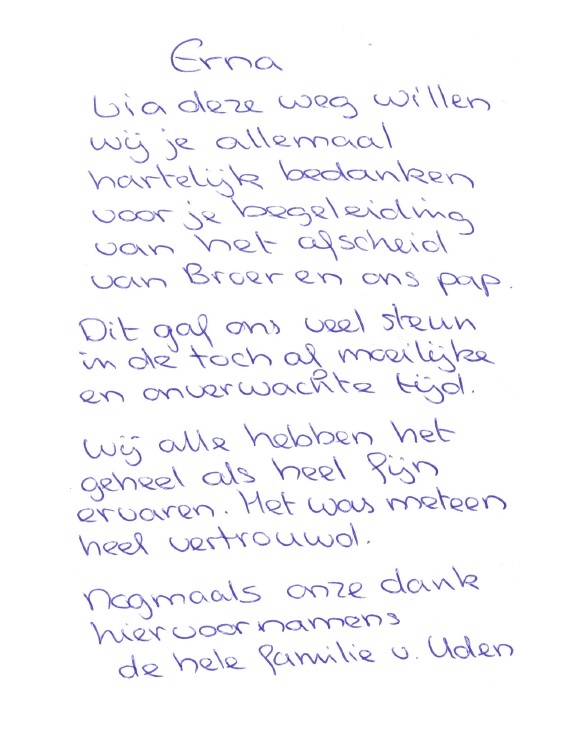 Erna
Via deze weg willen
wij je allemaal
hartelijk bedanken
voor je begeleiding
van het afscheid
van Broer en ons pap.
Dit gaf ons veel steun
in de toch al moeilijke
en onverwachte tijd.
Wij alle hebben het
geheel als heel fijn
ervaren. Het was meteen
heel vertrouwd.
Nogmaals onze dank
hiervoor namens
de hele familie v. Uden